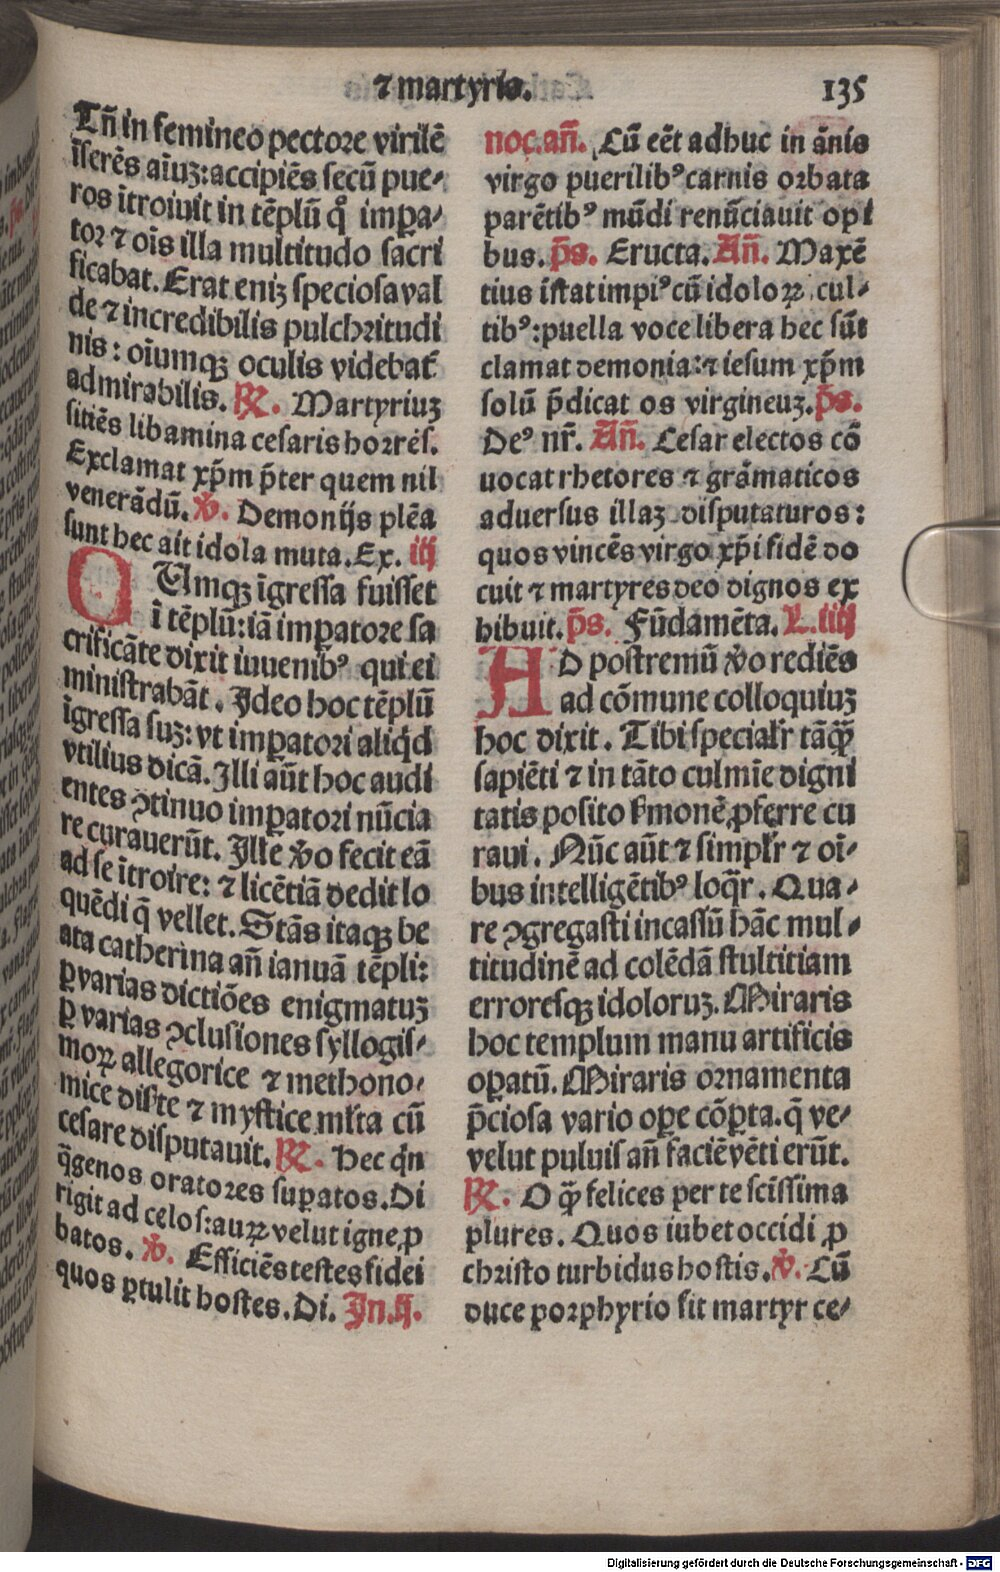 ⁊ martyrio.
135
Tn̄ in femineo pectore virilē
īserēs aīuꝫ: accipiēs secū pue-
ros ītroiuit in tēplū qͦ imꝑa-
tor ⁊ oīs illa multitudo sacri
ficabat. Erat eniꝫ speciosa val
de ⁊ incredibilis pulchritudi
nis: oīumqꝫ oculis videbat᷑
admirabilis. ℟. Martyriuꝫ
sitiēs libamina cesaris horrēs.
Exclamat xp̄m p̄ter quem nil
venerādū. ℣. Demonijs plēa
sunt hec ait idola muta. Ex. iij
QUmqꝫ īgressa fuisset
ī tēplū: iā imꝑatore sa
crificāte dixit iuuenibꝰ qui ei
ministrabāt. Ideo hoc tēplū
īgressa suꝫ: vt imꝑatori aliqd
vtilius dicā. Illi aūt hoc audi
entes ↄtinuo imꝑatori nūcia
re curauerūt. Ille ꝟo fecit eā
ad se ītroire: ⁊ licētiā dedit lo
quēdi q̄ vellet. Stās itaqꝫ be
ata catherina an̄ ianuā tēpli:
ꝑ varias dictiōes enigmatuꝫ
ꝑ varias ↄclusiones syllogis-
moꝝ allegorice ⁊ methono-
mice diẜte ⁊ mystice mĺta cū
cesare disputauit. ℟. Hec qn
q̄genos oratores suꝑatos. Di
rigit ad celos: auꝝ velut igne ꝓ
batos. ℣. Efficiēs testes fidei
quos ꝑtulit hostes. Di. In.ij.
noc. an̄. Cū eēt adhuc in ānis
virgo puerilibꝰ carnis orbata
parētibꝰ mūdi renūciauit opi
bus. p̄s. Eructa. An̄. Maxē
tius īstat impiꝰ cū idoloꝝ cul-
tibꝰ: puella voce libera hec sūt
clamat demonia: ⁊ iesum xp̄m
solū p̄dicat os virgineuꝫ. p̄s.
Deꝰ nr̄. An̄. Cesar electos cō
uocat rhetores ⁊ grāmaticos
aduersus illaꝫ disputaturos:
quos vincēs virgo xp̄i fidē do
cuit ⁊ martyres deo dignos ex
hibuit. p̄s. Fūdamēta. L. iiij
AD postremū ꝟo rediēs
ad cōmune colloquiuꝫ
hoc dixit. Tibi specialr̄ tāqꝫ̄
sapiēti ⁊ in tāto culmīe digni
tatis posito ẜmonē ꝓferre cu
raui. Nūc aūt ⁊ simplr̄ ⁊ oī-
bus intelligētibꝰ loq̄r. Qua-
re ↄgregasti incassū hāc mul-
titudinē ad colēdā stultitiam
erroresqꝫ idoloruꝫ. Miraris
hoc templum manu artificis
oꝑatū. Miraris ornamenta
p̄ciosa vario oꝑe cōꝑta. q̄ ve-
velut puluis an̄ faciē vēti erūt.
℟. O qꝫ̄ felices per te scīssima
plures. Quos iubet occidi ꝓ
christo turbidus hostis. ℣. Cū
duce porphyrio fit martyr ce-
Digitalisierung gefördert durch die Deutsche Forschungsgemeinschaft - DFG